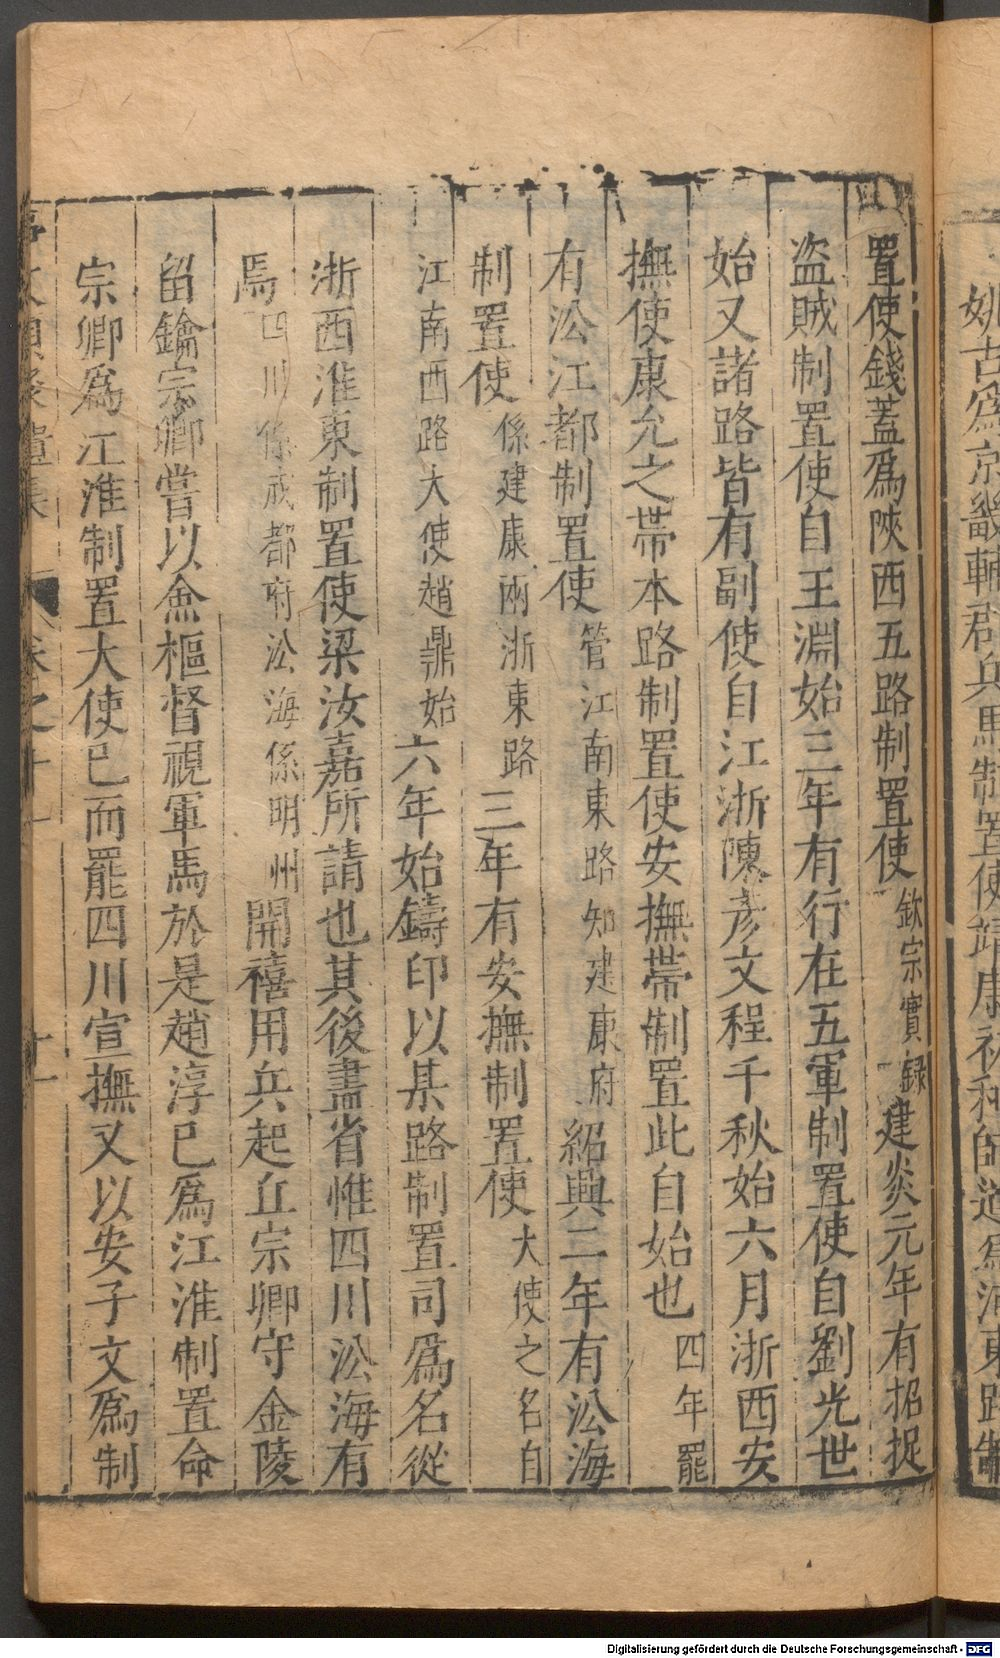 姚古爲京畿輔郡兵馬制置使靖康初种師道爲河東路制
置使錢蓋爲陜西五路制置使欽宗實録建炎元年有招捉
盗賊制置使自王淵始三年有行在五軍制置使自劉光世
始又諸路皆有副使自江浙陳彦文程千秋始六月浙西安
撫使康允之帶本路制置使安撫帶制置此自始也四年罷
有㳂江都制置使管江南東路知建康府紹興二年有㳂海
制置使係建康兩浙東路三年有安撫制置使大使之名自
江南西路大使趙鼎始六年始鑄印以某路制置司爲名從
浙西淮東制置使梁汝嘉所請也其後盡省惟四川㳂海有
焉四川係成都府㳂海係明州開禧用兵起丘宗卿守金陵
留鑰宗卿嘗以僉樞督視軍馬於是趙淳已爲江淮制置命
宗卿爲江淮制置大使已而罷四川宣撫又以安子文爲制
卷之十
Digitalisierung gefördert durch die Deutsche Forschungsgemeinschaft - DFG